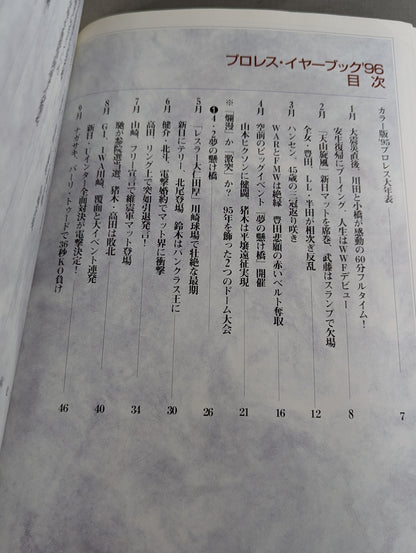 プロレス・イヤーブック'96
目次
カラー版'95プロレス大年表 7
1月 大震災直後、川田と小橋が感動の60分フルタイム!
安生復帰にブーイング 人生はWWFデビュー 8
2月 “天山旋風”新日マットを席巻、武藤はスランプで欠場
全女・豊田、LL・半田が相次ぎ反乱 12
3月 ハンセン、45歳の三冠返り咲き
WARとFMWは絶縁 豊田悲願の赤いベルト奪取 16
4月 空前のビッグイベント「夢の懸け橋」開催
山本ヒクソンに健闘 猪木は平壌遠征実現 21
※「爛漫」か「激突」か? 95年を飾った2つのドーム大会
❶4・2夢の懸け橋 26
5月 「レスラー大仁田厚」川崎球場で壮絶な最期
新日にテリー、北尾登場 鈴木はパンクラス王に 30
6月 健介・北斗、電撃婚約でマット界に衝撃
高田、リング上で突如引退発言!
7月 山崎、フリー宣言で維新軍マット登場
馳が参院選当選、猪木・高田は敗北 34
8月 G1、IWA川崎、覆面と大イベント連発
新日・Uインター全面対決が電撃決定! 40
9月 ナガサキ、バーリ・トゥードで36秒KO負け 46